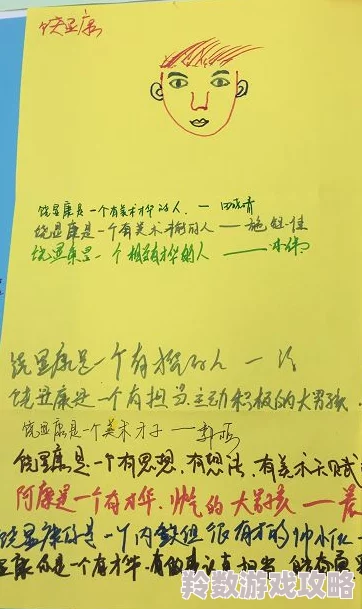 饶显康
饶显康是一个有美术才华的人。——
饶显康是一个有美术才能的人——施
饶显康是一个 有才华的人 ——
饶显康是一个有 的人 —
饶显康是一个有担当主动积极的大男孩.
饶显康是一个美术才子——
饶显康是一个有思想，有想法，有美术天赋
阿康是一个有才华，帅气的大男孩——
饶显康 是一个内敛但很有才的帅小伙
显康你是一个有才华，有
羚数游戏攻略